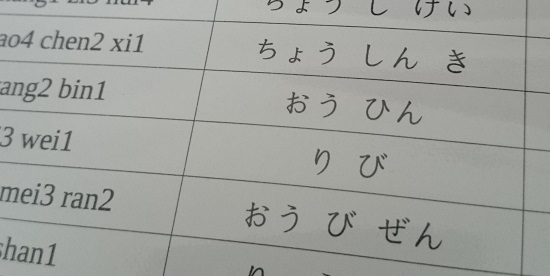 ちょう し けい
ao4 chen2 xi1 ちょう しん き
ang2 bin1 おう ひん
3 wei1 り び
mei3 ran2 おう び ぜん
shan1